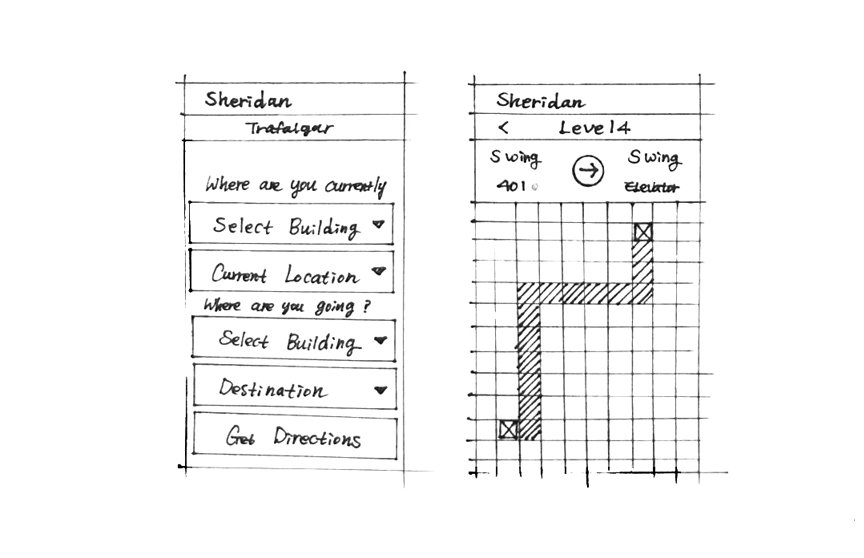 Sheridan
Trafalgar
Where are you currently
Select Building
Current Location
Where are you going?
Select Building
Destination
Get Directions
Sheridan
< Level 4
S wing → S wing
401 Elevator